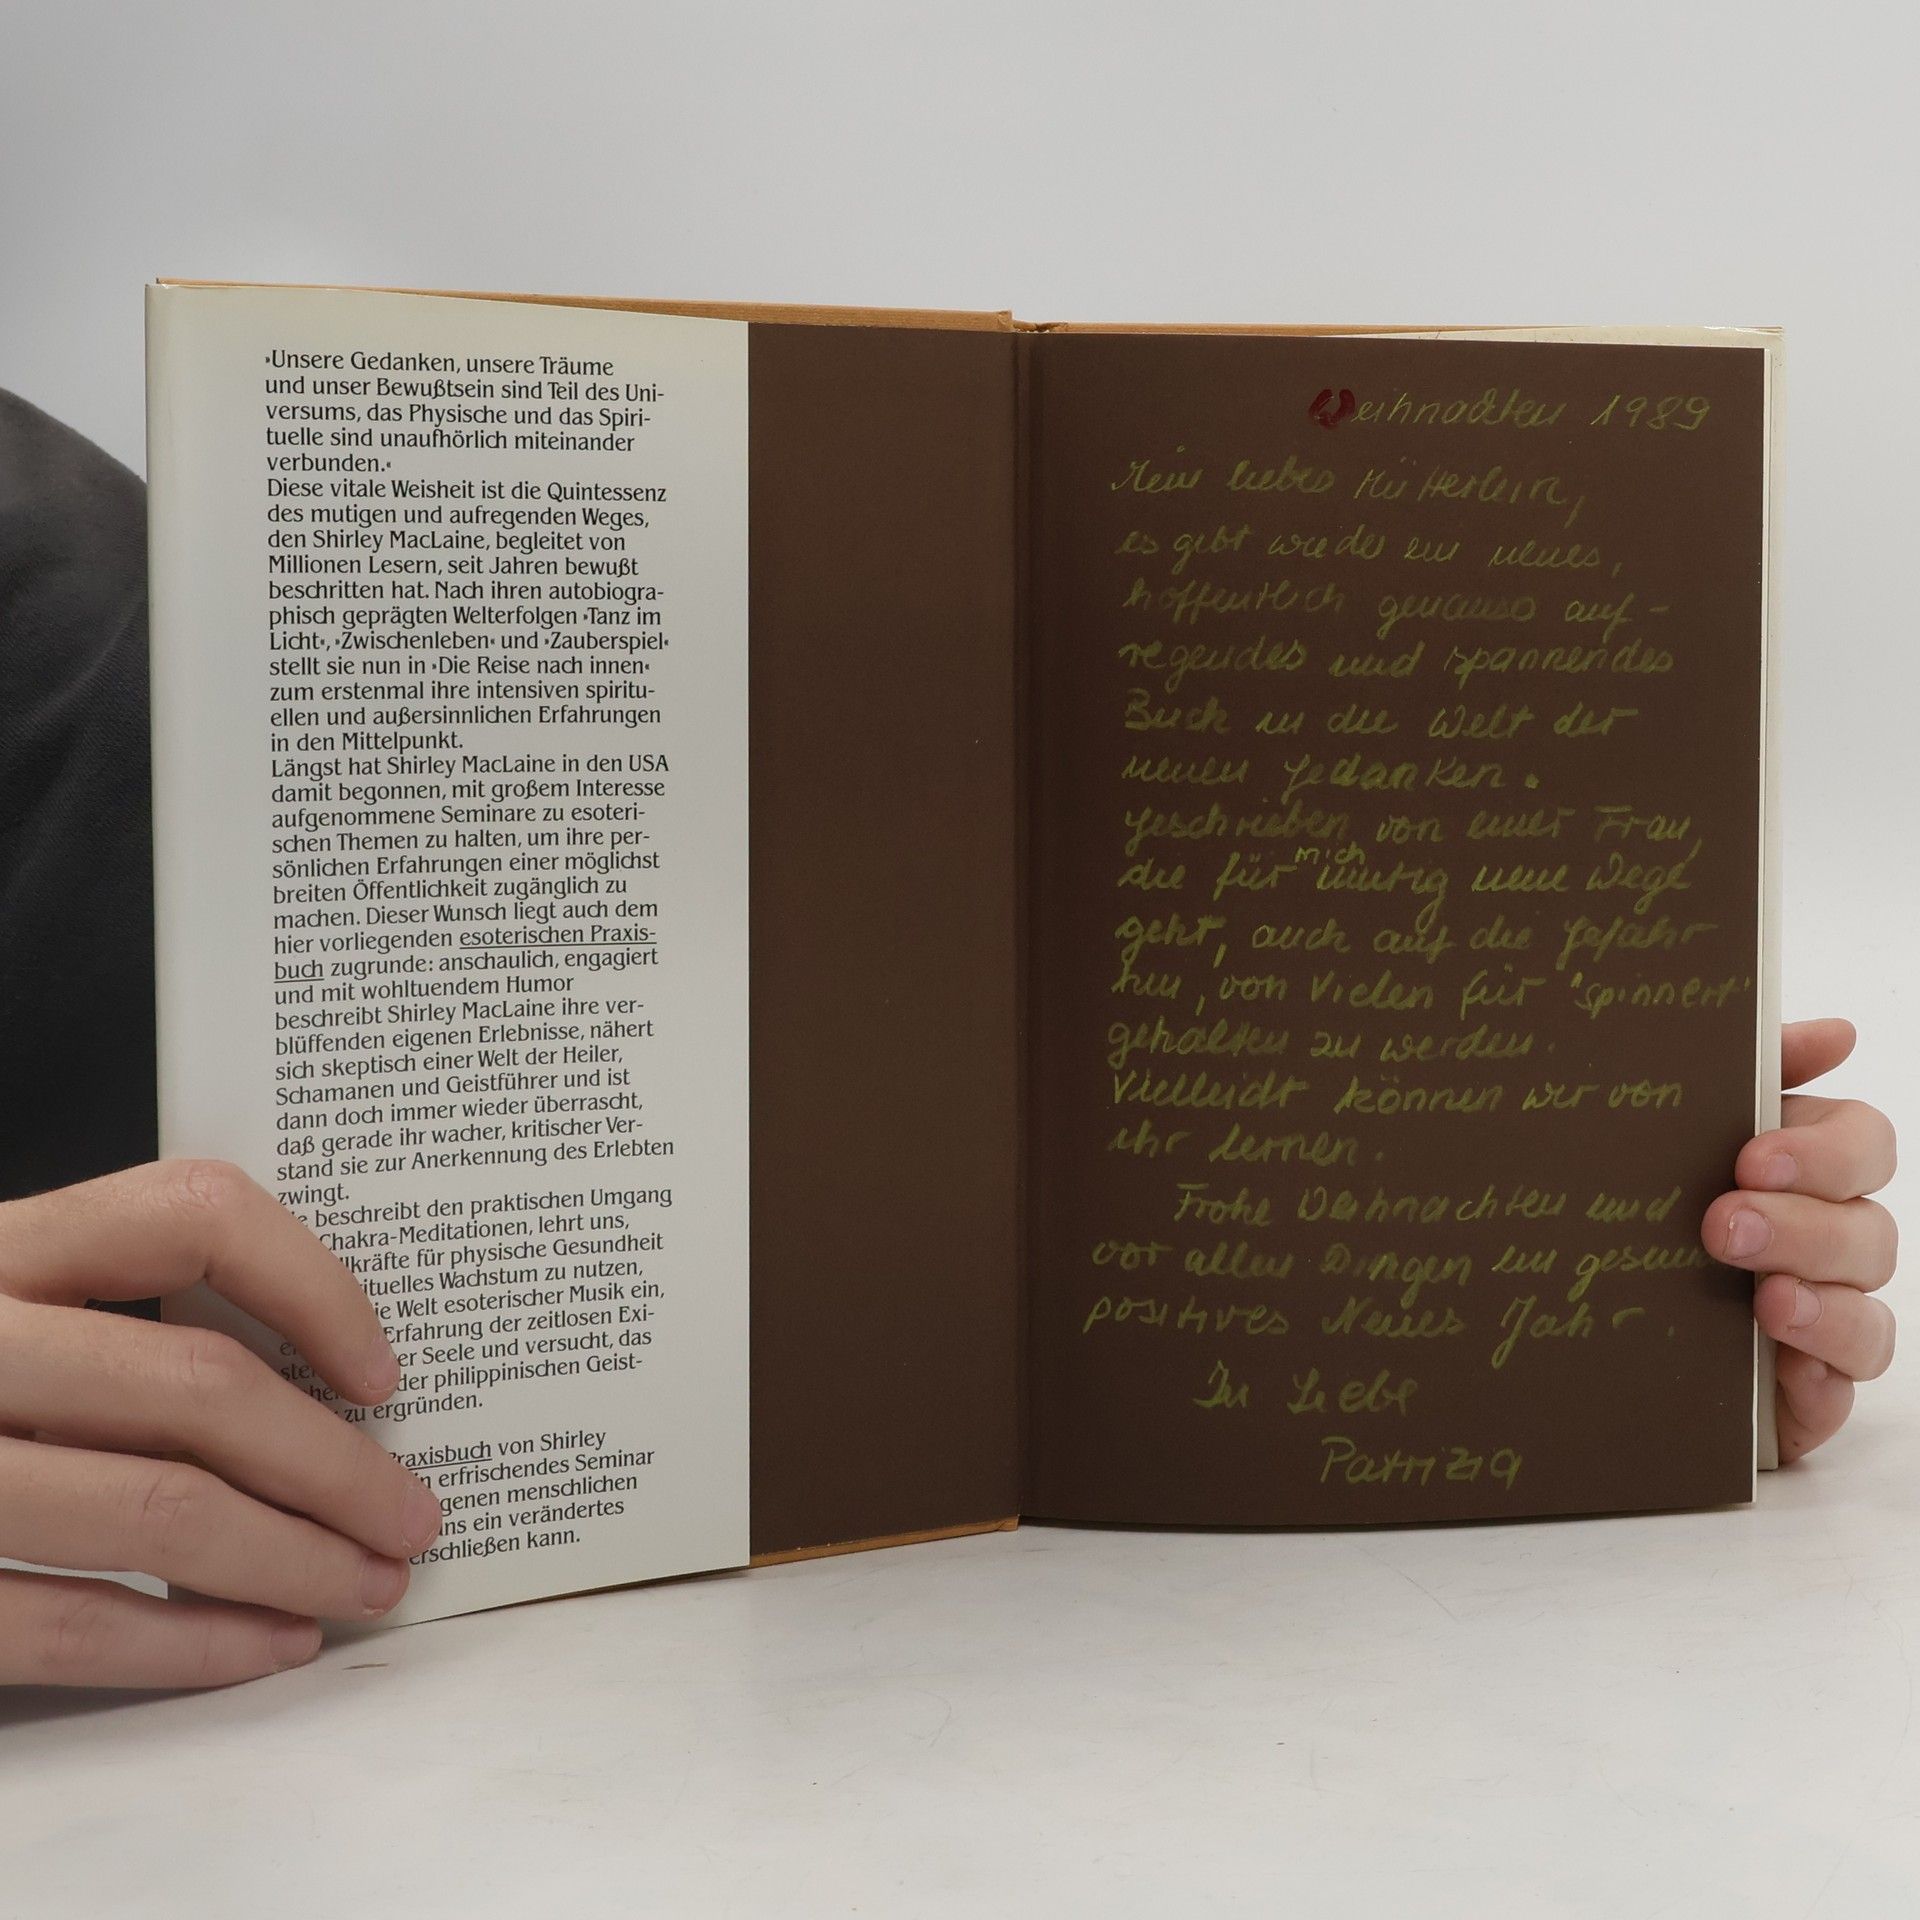 ›Unsere Gedanken, unsere Träume
und unser Bewußtsein sind Teil des Uni-
versums, das Physische und das Spiri-
tuelle sind unaufhörlich miteinander
verbunden.‹
Diese vitale Weisheit ist die Quintessenz
des mutigen und aufregenden Weges,
den Shirley MacLaine, begleitet von
Millionen Lesern, seit Jahren bewußt
beschritten hat. Nach ihren autobiogra-
phisch geprägten Welterfolgen ›Tanz im
Licht‹, ›Zwischenleben‹ und ›Zauberspiel‹
stellt sie nun in ›Die Reise nach innen‹
zum erstenmal ihre intensiven spiritu-
ellen und außersinnlichen Erfahrungen
in den Mittelpunkt.
Längst hat Shirley MacLaine in den USA
damit begonnen, mit großem Interesse
aufgenommene Seminare zu esoteri-
schen Themen zu halten, um ihre per-
sönlichen Erfahrungen einer möglichst
breiten Öffentlichkeit zugänglich zu
machen. Dieser Wunsch liegt auch dem
hier vorliegenden esoterischen Praxis-
buch zugrunde: anschaulich, engagiert
und mit wohltuendem Humor
beschreibt Shirley MacLaine ihre ver-
blüffenden eigenen Erlebnisse, nähert
sich skeptisch einer Welt der Heiler,
Schamanen und Geistführer und ist
dann doch immer wieder überrascht,
daß gerade ihr wacher, kritischer Ver-
stand sie zur Anerkennung des Erlebten
zwingt.
beschreibt den praktischen Umgang
Chakra-Meditationen, lehrt uns,
lkräfte für physische Gesundheit
ituelles Wachstum zu nutzen,
ie Welt esoterischer Musik ein,
Erfahrung der zeitlosen Exi-
er Seele und versucht, das
der philippinischen Geist-
zu ergründen.
Praxisbuch von Shirley
n erfrischendes Seminar
genen menschlichen
uns ein verändertes
erschließen kann.
Weihnachten 1989
Mein liebes Mütterlein,
es gibt wieder ein neues,
hoffentlich genauso auf-
regendes und spannendes
Buch in die Welt der
neuen Gedanken.
Geschrieben von einer Frau,
die für mich mutig neue Wege
geht, auch auf die Gefahr
hin, von Vielen für "spinnert"
gehalten zu werden.
Vielleicht können wir von
ihr lernen.
Frohe Weihnachten und
vor allen Dingen ein gesun
positives Neues Jahr.
In Liebe
Patrizia